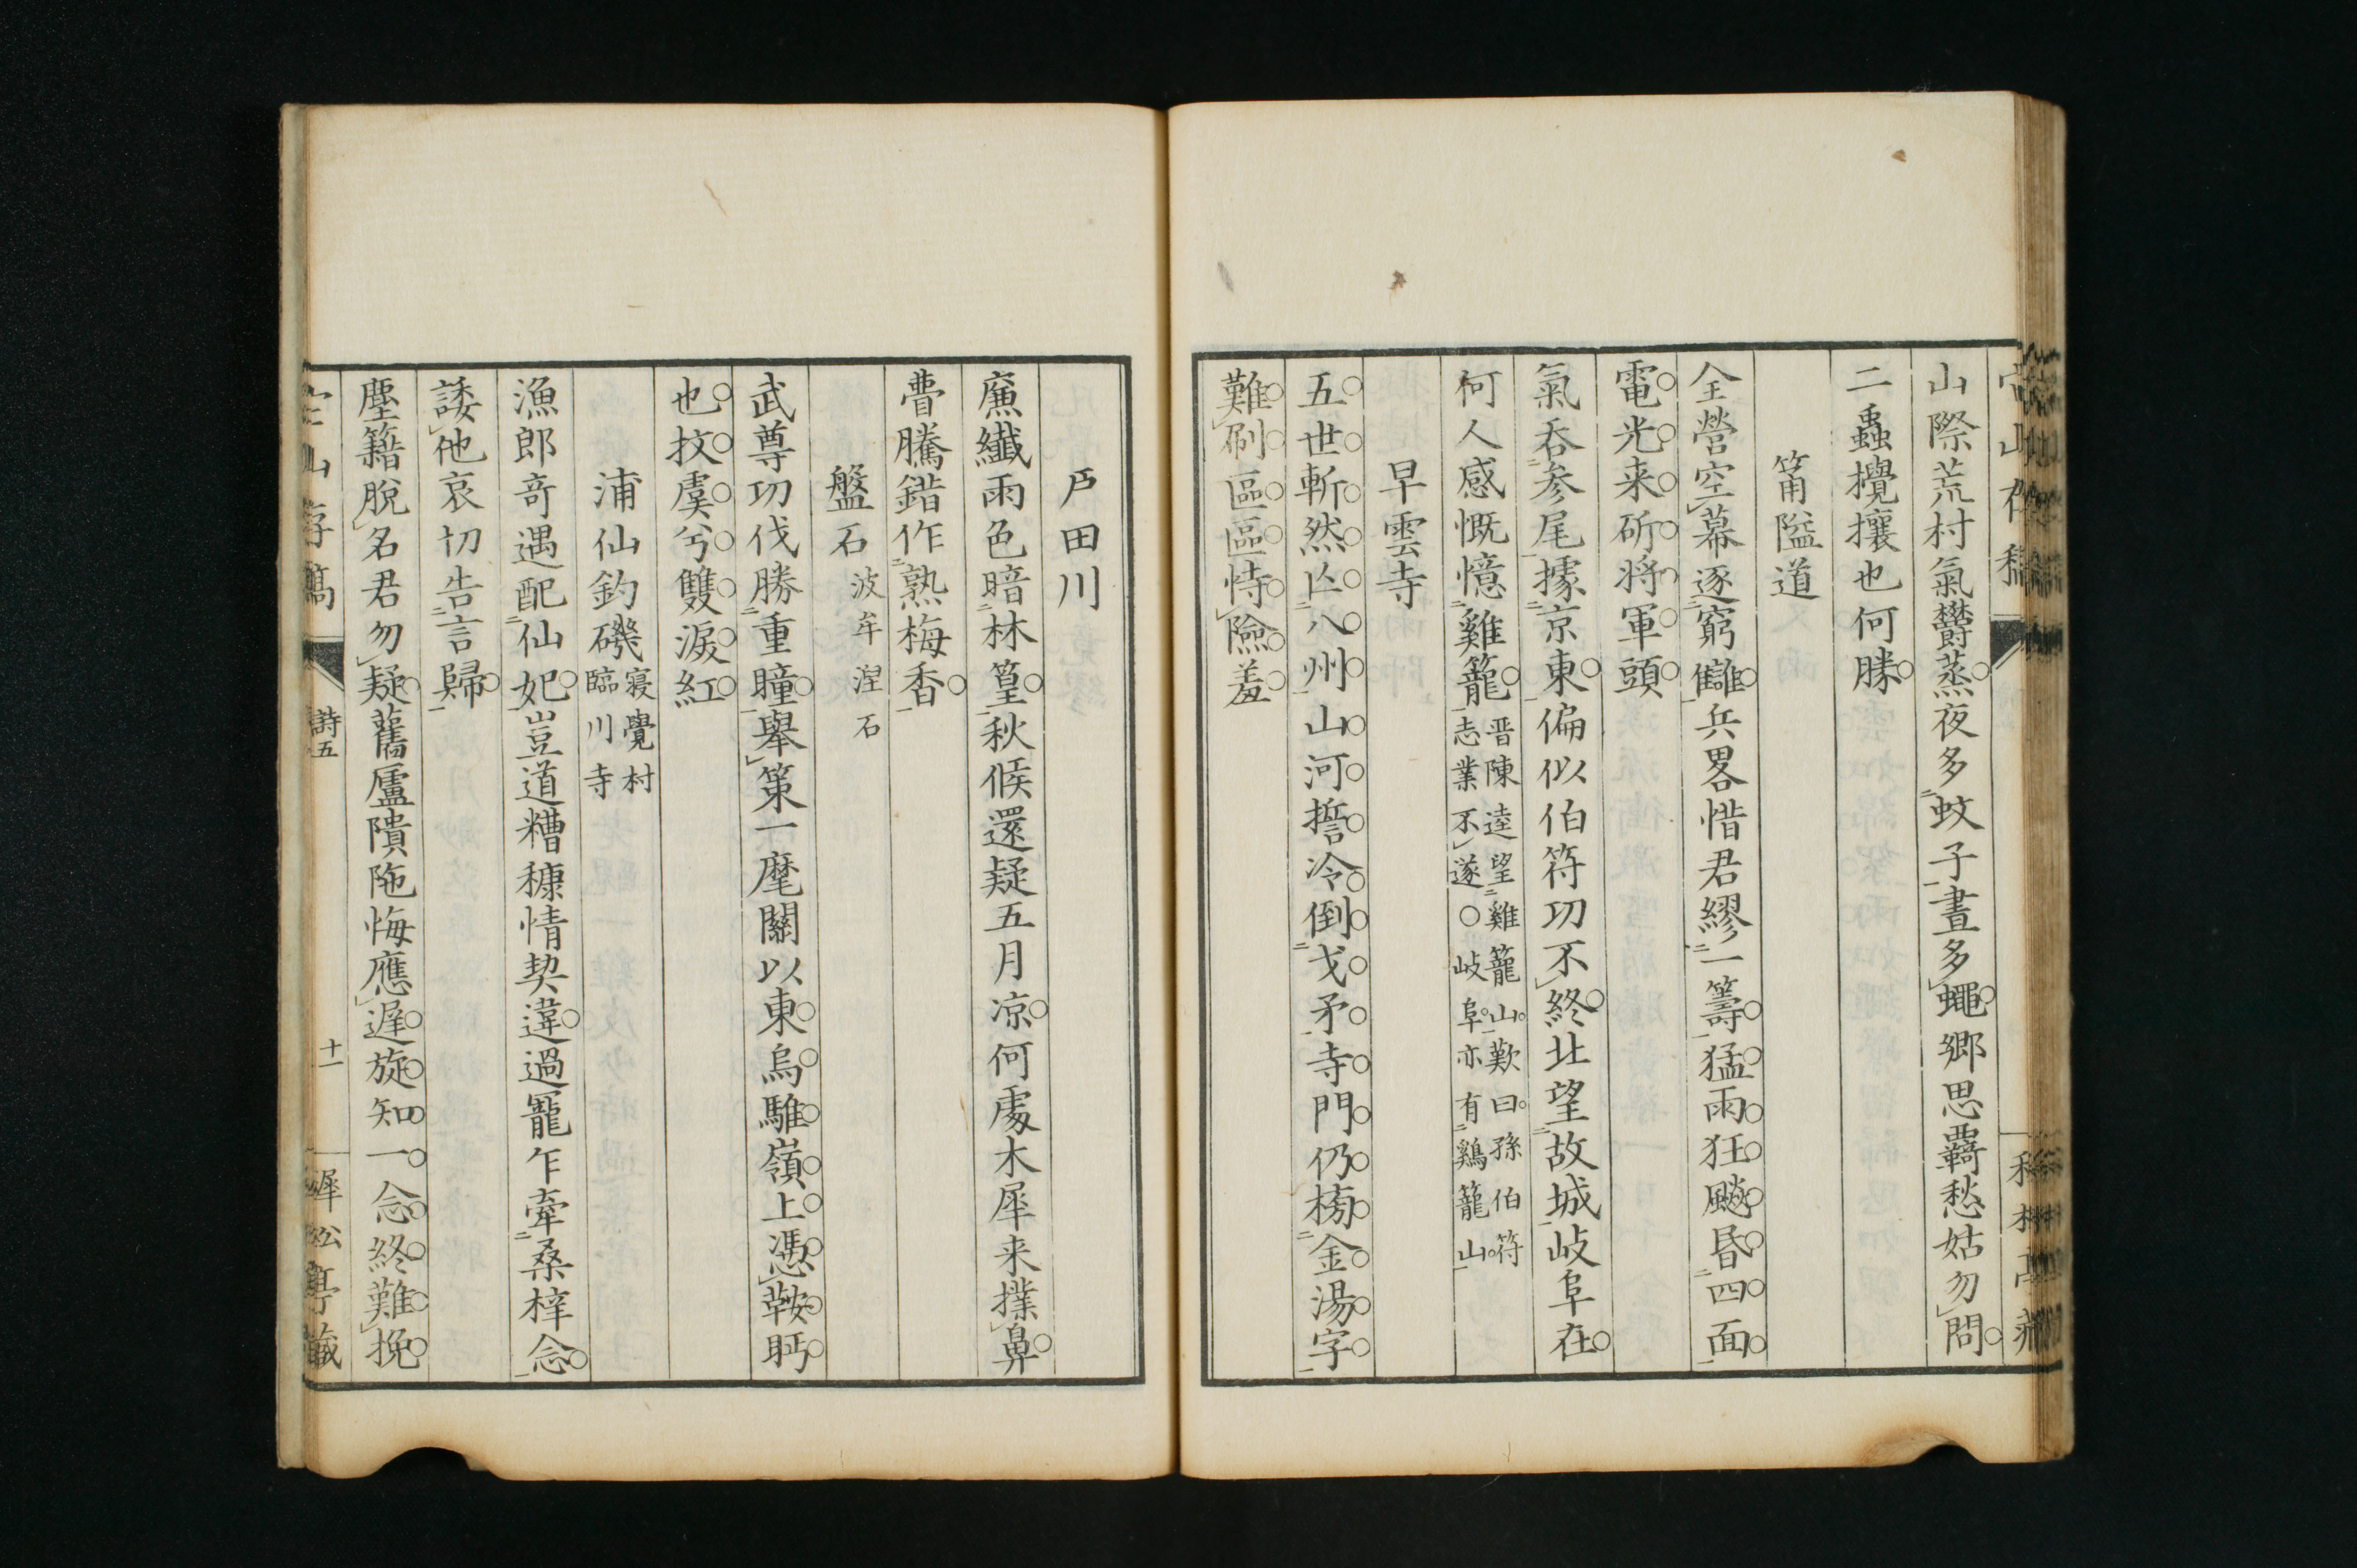 山際荒村氣欝蒸夜多蚊子晝多蠅郷思覊愁姑勿問
二蟲攪攘也何勝
筩隘道
全營空幕逐窮讎兵畧惜君繆一籌猛雨狂飈昏四面
電光来斫将軍頭
氣呑参尾據京東偏似伯符功不終北望故城岐阜在
何人感慨憶雞籠晋陳逵望雞籠山歎曰孫伯符
志業不遂○岐阜亦有鷄籠山
早雲寺
五世斬然亾八州山河誓冷倒戈矛寺門仍榜金湯字
難刷區區恃險羞
戸田川
廉纖雨色暗林篁秋候還疑五月凉何處木犀来撲鼻
瞢騰錯作熟梅香
盤石波牟涅石
武尊功伐勝重瞳舉第一麾關以東烏騅嶺上憑鞍眄
也抆虞兮雙淚紅
浦仙釣磯寢覺村
臨川寺
漁郎竒遇配仙妃豈道糟糠情契違過寵乍牽桑梓念
諉他哀切告言歸
塵籍脫名君勿疑舊廬隤陁悔應遲旋知一念終難挽
詩五
十一